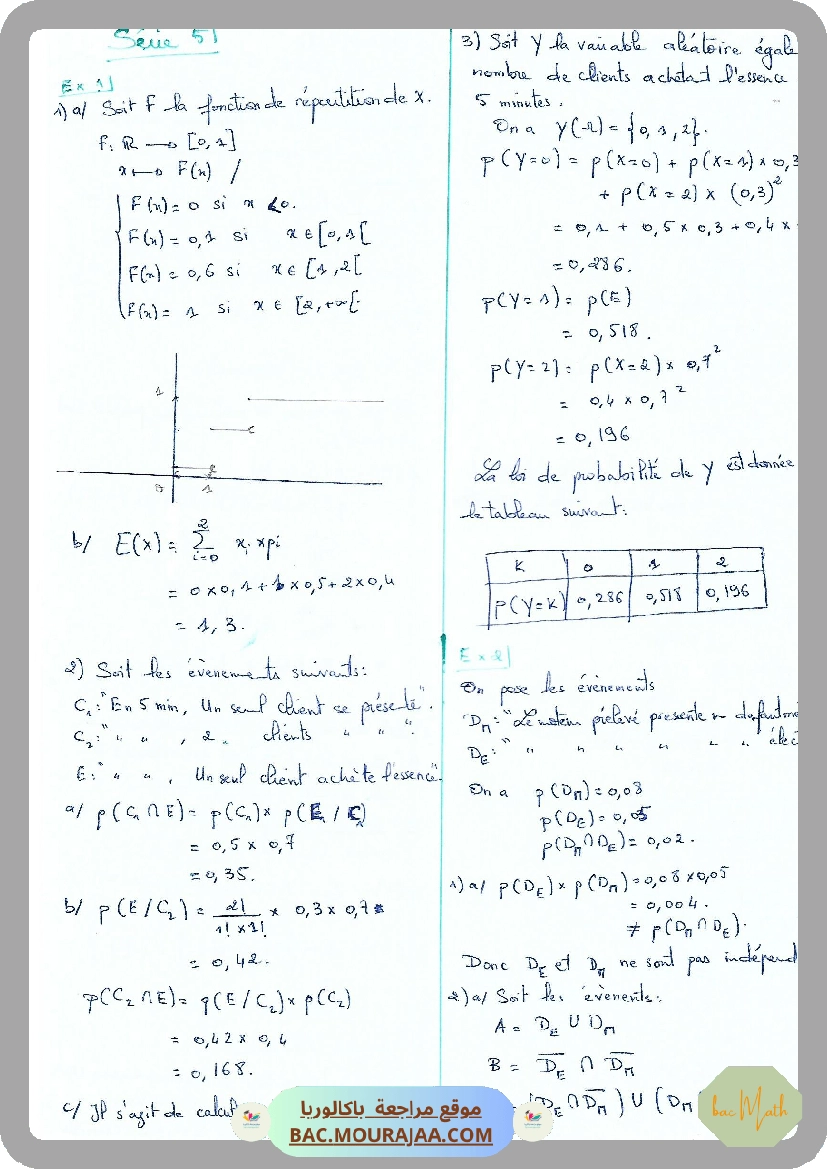 Série 5
Ex 1
1) a/ Soit F la fonction de répartition de X.
F: ℝ → [0,1]
x ↦ F(x) /
F(x) = 0 si x < 0.
F(x) = 0,1 si x ∈ [0,1[
F(x) = 0,6 si x ∈ [1,2[
F(x) = 1 si x ∈ [2,+∞[
1
0 1
b/ E(X) = Σ xi × pi
2
i=0
= 0×0,1 + 1×0,5 + 2×0,4
= 1,3.
2) Soit les évènements suivants:
C1: "En 5 min, Un seul client se présente".
C2: " " " , 2 clients " " ".
E: " " " , Un seul client achète l'essence.
a/ p(C1 ∩ E) = p(C1) × p(E / C1)
= 0,5 × 0,7
= 0,35.
b/ p(E/C2) = 2! / 1! × 1! × 0,3 × 0,7
= 0,42.
p(C2 ∩ E) = p(E/C2) × p(C2)
= 0,42 × 0,4
= 0,168.
c/ Il s'agit de calcul
3) Soit Y la variable aléatoire égale
nombre de clients achetant l'essence
5 minutes.
On a Y(Ω) = {0, 1, 2}.
p(Y=0) = p(X=0) + p(X=1) × 0,3
+ p(X=2) × (0,3)²
= 0,1 + 0,5 × 0,3 + 0,4 ×
= 0,286.
p(Y=1) = p(E)
= 0,518.
p(Y=2) = p(X=2) × 0,7²
= 0,4 × 0,7²
= 0,196
La loi de probabilité de Y est donnée
le tableau suivant:
K 0 1 2
p(Y=K) 0,286 0,518 0,196
Ex 2
On pose les évènements
DM: "Le moteur prélevé présente
DE: " " " " " " élec
On a p(DM) = 0,08
p(DE) = 0,05
p(DM ∩ DE) = 0,02.
1) a/ p(DE) × p(DM) = 0,08 × 0,05
= 0,004.
≠ p(DM ∩ DE).
Donc DE et DM ne sont pas indépend
2) a/ Soit les évènements:
A = DE ∪ DM
B = D̅E ∩ D̅M
= (DE ∩ D̅M) ∪ (DM
موقع مراجعة باكالوريا
BAC.MOURAJAA.COM
bac Math